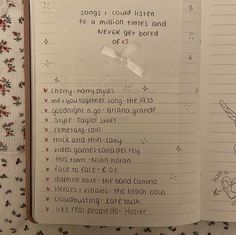 songs i could listen
to a million times and
NEVER get bored
of <3
cherry - harry styles
me + you together song - the 1975
goodnight n go - ariana grande
style - Taylor Swift
cemetary - coin
thick and thin - Lany
video games - Lana del rey
this town - Niall horan
face to face - R.O.C
daphne blue - the band camino
Heroes + villains - the beach boys
cloudbusting - kate bush
like real people do - Hozier